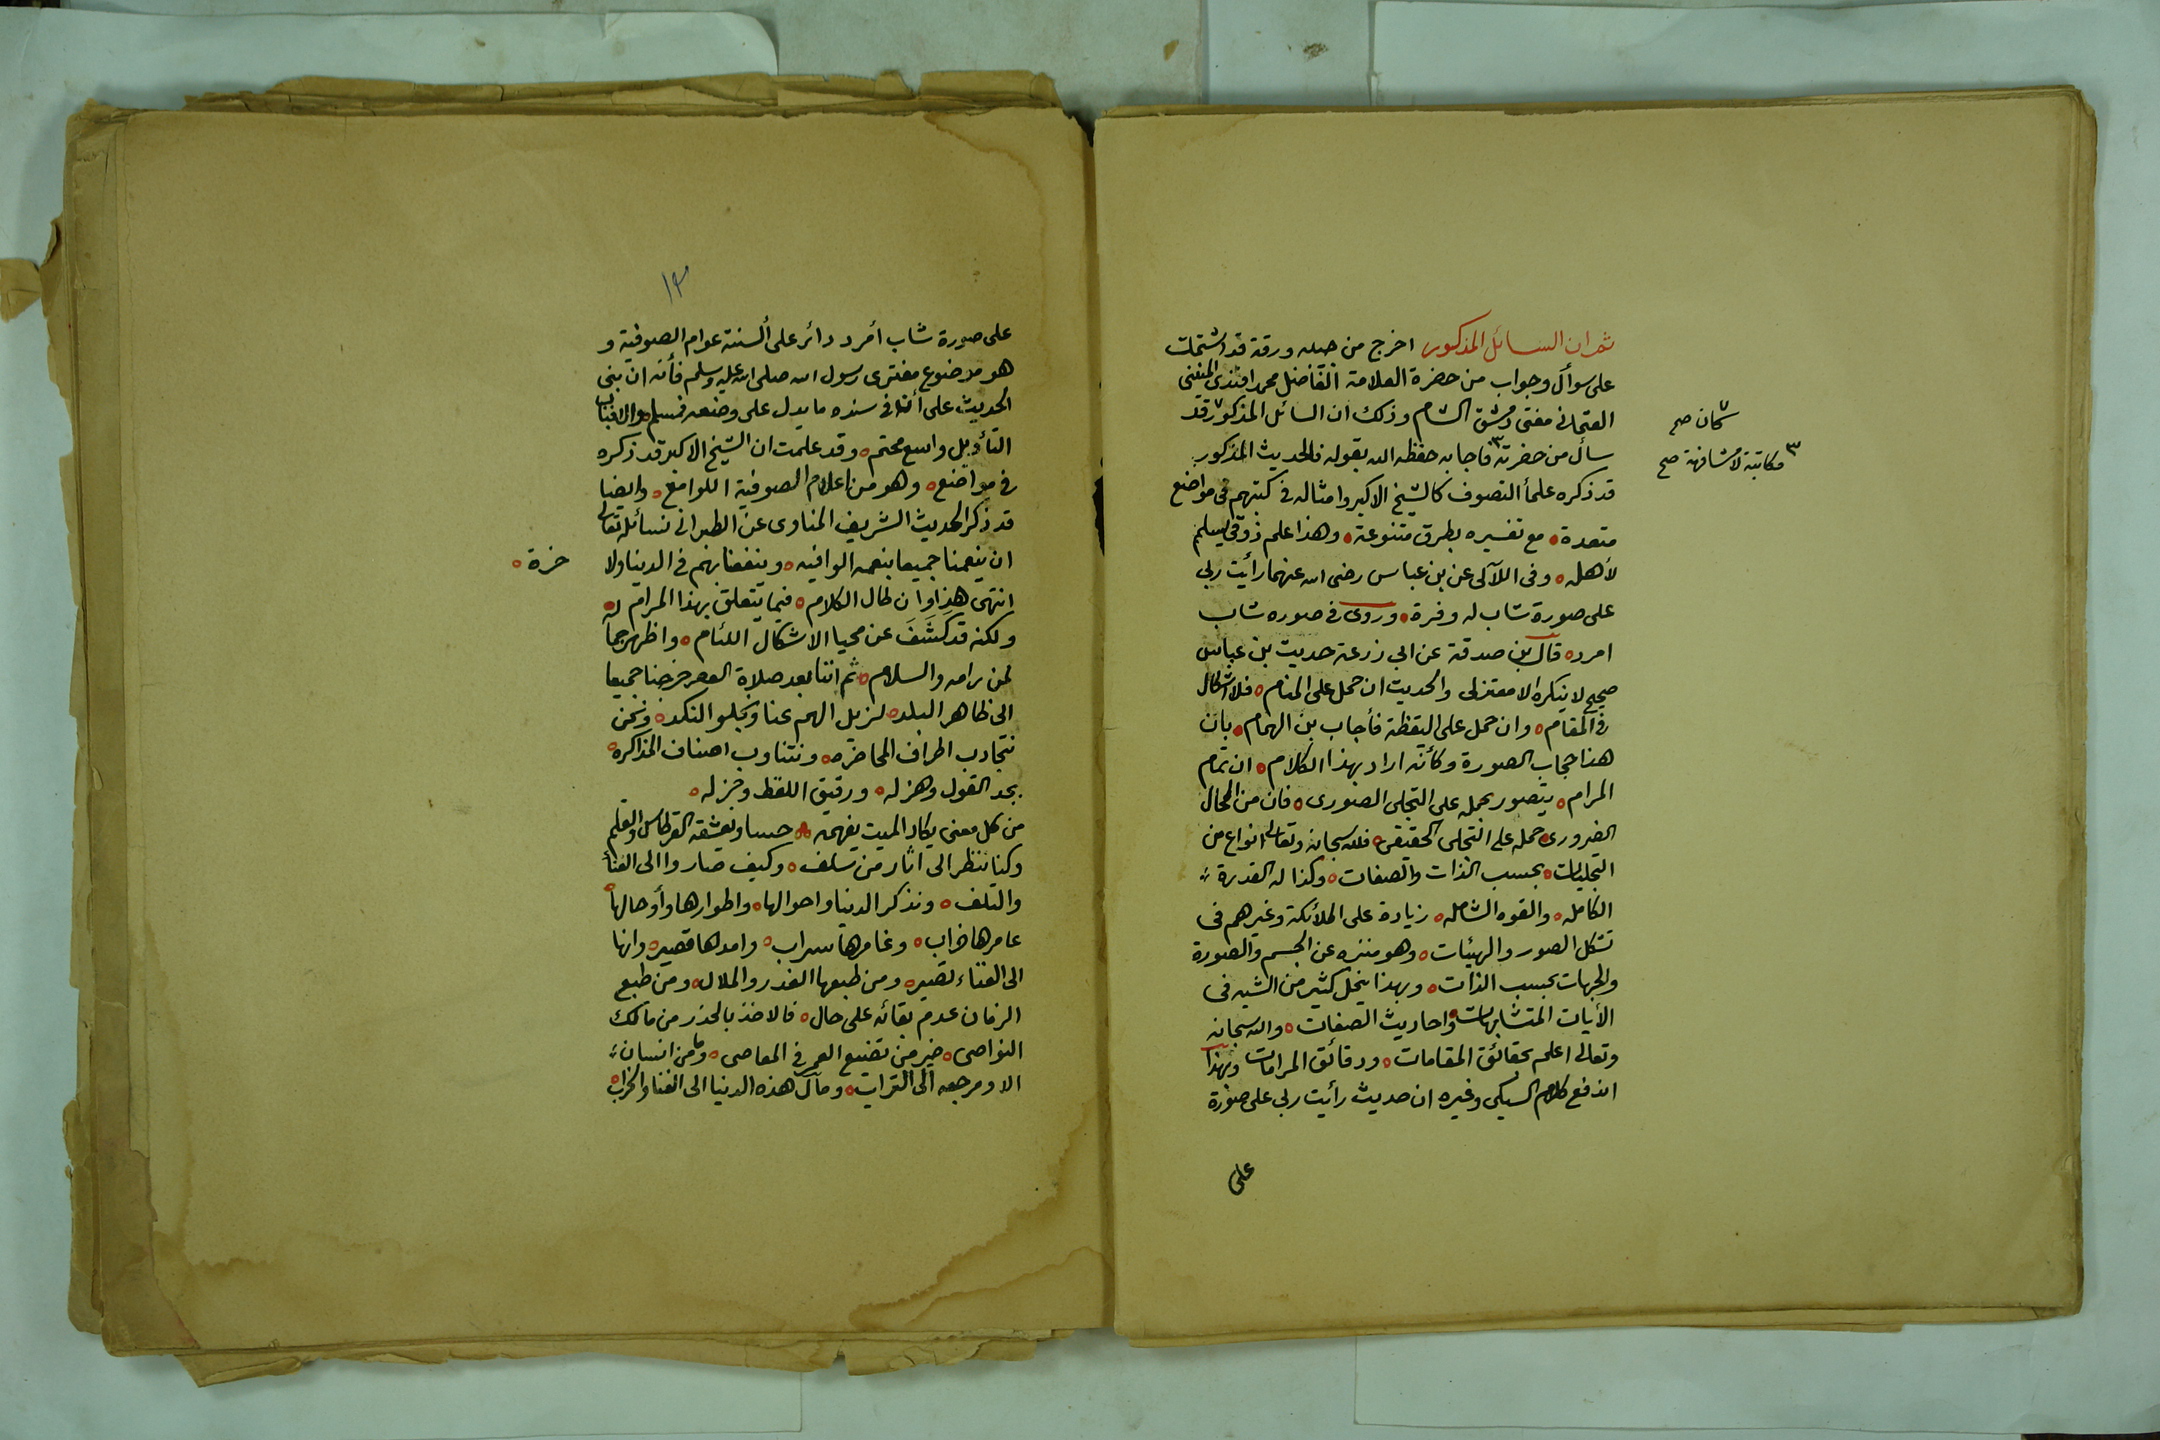 ثم ان السائل المذكور اخرج من جيبه ورقة قد اشتملت
على سوأل وجواب من حضرة العلامة الفاضل محمد افندى المنينى
العثمانى مفتى دمشق الشام وذلك ان السائل المذكور قد
كان صح
سأل من حضرته فاجابه حفظه الله بقوله فالحديث المذكور
٣ مكاتبة لا مشافهة صح
قد ذكره علمأ التصوف كالشيخ الاكبر وامثاله فى كتبهم فى مواضع
متعددة مع تفسيره بطرق متنوعة وهذا علم ذوقى يسلم
لأهله وفى اللآلى عن بن عباس رضى الله عنهما رأيت ربى
على صورة شاب له وفرة وروى فى صوره شاب
امرد قال بن صدقة عن ابى زرعة حديث بن عباس
صحيح لا ينكره الا معتزلى والحديث ان حمل على المنام فلا اشكال
فى المقام وان حمل على اليقظة فأجاب بن الهمام بان
هذا حجاب الصورة وكأنه اراد بهذا الكلام ان تمام
المرام يتصور بحمله على التجلى الصورى فان من المحال
الضرورى حمله على التجلى الحقيقى فلله سبحانه وتعالى انواع من
التجليات بحسب الذات والصفات وكذا له القدرة
الكامله والقوه الشامله زيادة على الملائكة وغيرهم فى
تشكل الصور والهيئات وهو منزه عن الجسم والصورة
والجهات بحسب الذات وبهذا ينحل كثير من الشبه فى
الأيات المتشابهات واحاديث الصفات والله سبحانه
وتعالى اعلم بحقائق المقامات ودقائق المرامات وبهذا
اندفع كلام السبكى وغيره ان حديث رأيت ربى على صورة
على
١٣
على صورة شاب أمرد دائر على ألسنة عوام الصوفية و
هو موضوع مفترى رسول الله صلى الله عليه وسلم فأنه ان بنى
الحديث على أن فى سنده ما يدل على وضعه فمسلم والا فباب
التأويل واسع محتم وقد علمت ان الشيخ الاكبر قد ذكره
فى مواضع وهو من اعلام الصوفية اللوامع وايضا
قد ذكر الحديث الشريف المناوى عن الطبرانى نسأله تعالى
ان ينعمنا جميعا بنعمه الوافيه وينفعنا بهم فى الدينا ولا
خرة
انتهى هذا وان طال الكلام فيما يتعلق بهذا المرام
ولكنه قد كشف عن محيا الاشكال اللثام واظهر جماله
لمن رامه والسلام ثم اننا بعد صلاة العصر خرجنا جميعا
الى ظاهر البلد لنزيل الهم عنا ونجلو النكد ونحن
نتجاذب اطراف المحاضره ونتناوب اصناف المذاكره
بجد القول وهزله ورقيق اللفظ وجزله
من كل معنى يكاد الميت يفهمه حسا ويعشقه القرطاس والقلم
وكنا ننظر الى اثار من سلف وكيف صاروا الى الفنأ
والتلف ونذكر الدنيا واحوالها واطوارها وأوحالها
عامرها خراب وغامرها سراب وامدها قصير وانها
الى الفناء تصير ومن طبعها الغدر والملاله ومن طبع
الزمان عدم بقائه على حال فالاخذ بالحذر من مالك
النواصى خير من تضييع العمر فى المعاصى وما من انسان
الا ومرجعه الى التراب ومآل هذه الدنيا الى الفنا والخراب